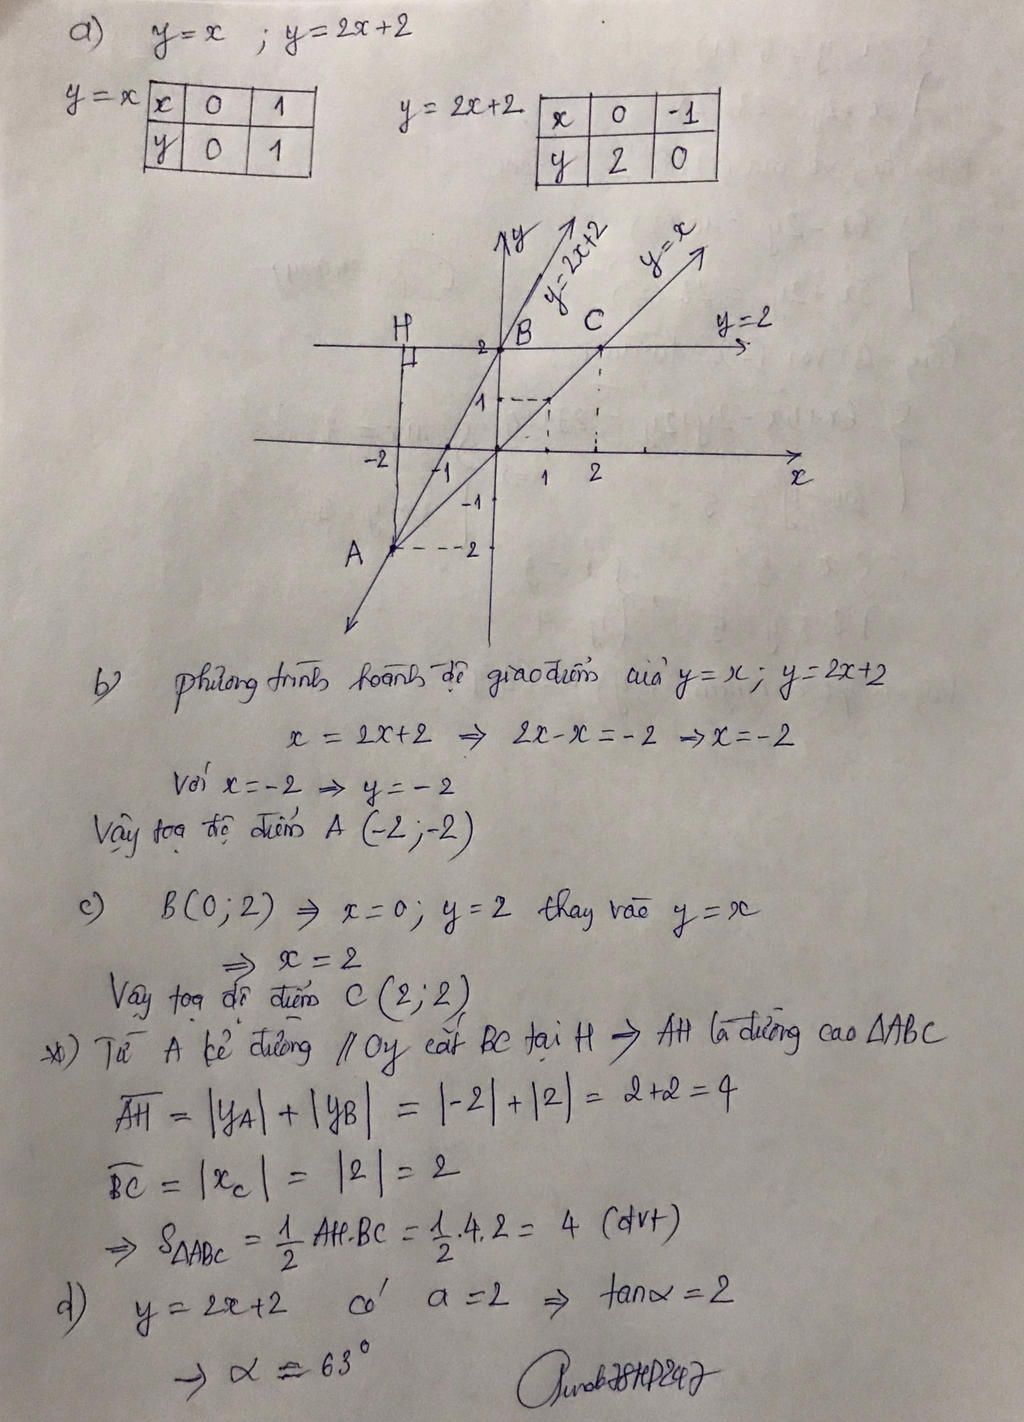 a) y = x ; y = 2x+2
y = x x 0 1 y = 2x+2 x 0 -1
y 0 1 y 2 0
y
y=2x+2
y=x
H B C y=2
2
1
-2 -1 1 2 x
-1
A -2
b) phương trình hoành độ giao điểm của y = x; y = 2x+2
x = 2x+2 ⇒ 2x-x = -2 ⇒ x = -2
Với x = -2 ⇒ y = -2
Vậy toạ độ điểm A (-2;-2)
c) B(0;2) ⇒ x=0; y=2 thay vào y = x
⇒ x = 2
Vậy toạ độ điểm C (2;2)
*) Từ A kẻ đường // Oy cắt BC tại H ⇒ AH là đường cao ΔABC
AH = |yA| + |yB| = |-2| + |2| = 2+2 = 4
BC = |xc| = |2| = 2
⇒ SΔABC = 1/2 AH.BC = 1/2 .4.2 = 4 (đvt)
d) y = 2x+2 có a = 2 ⇒ tanα = 2
→ α ≈ 63°